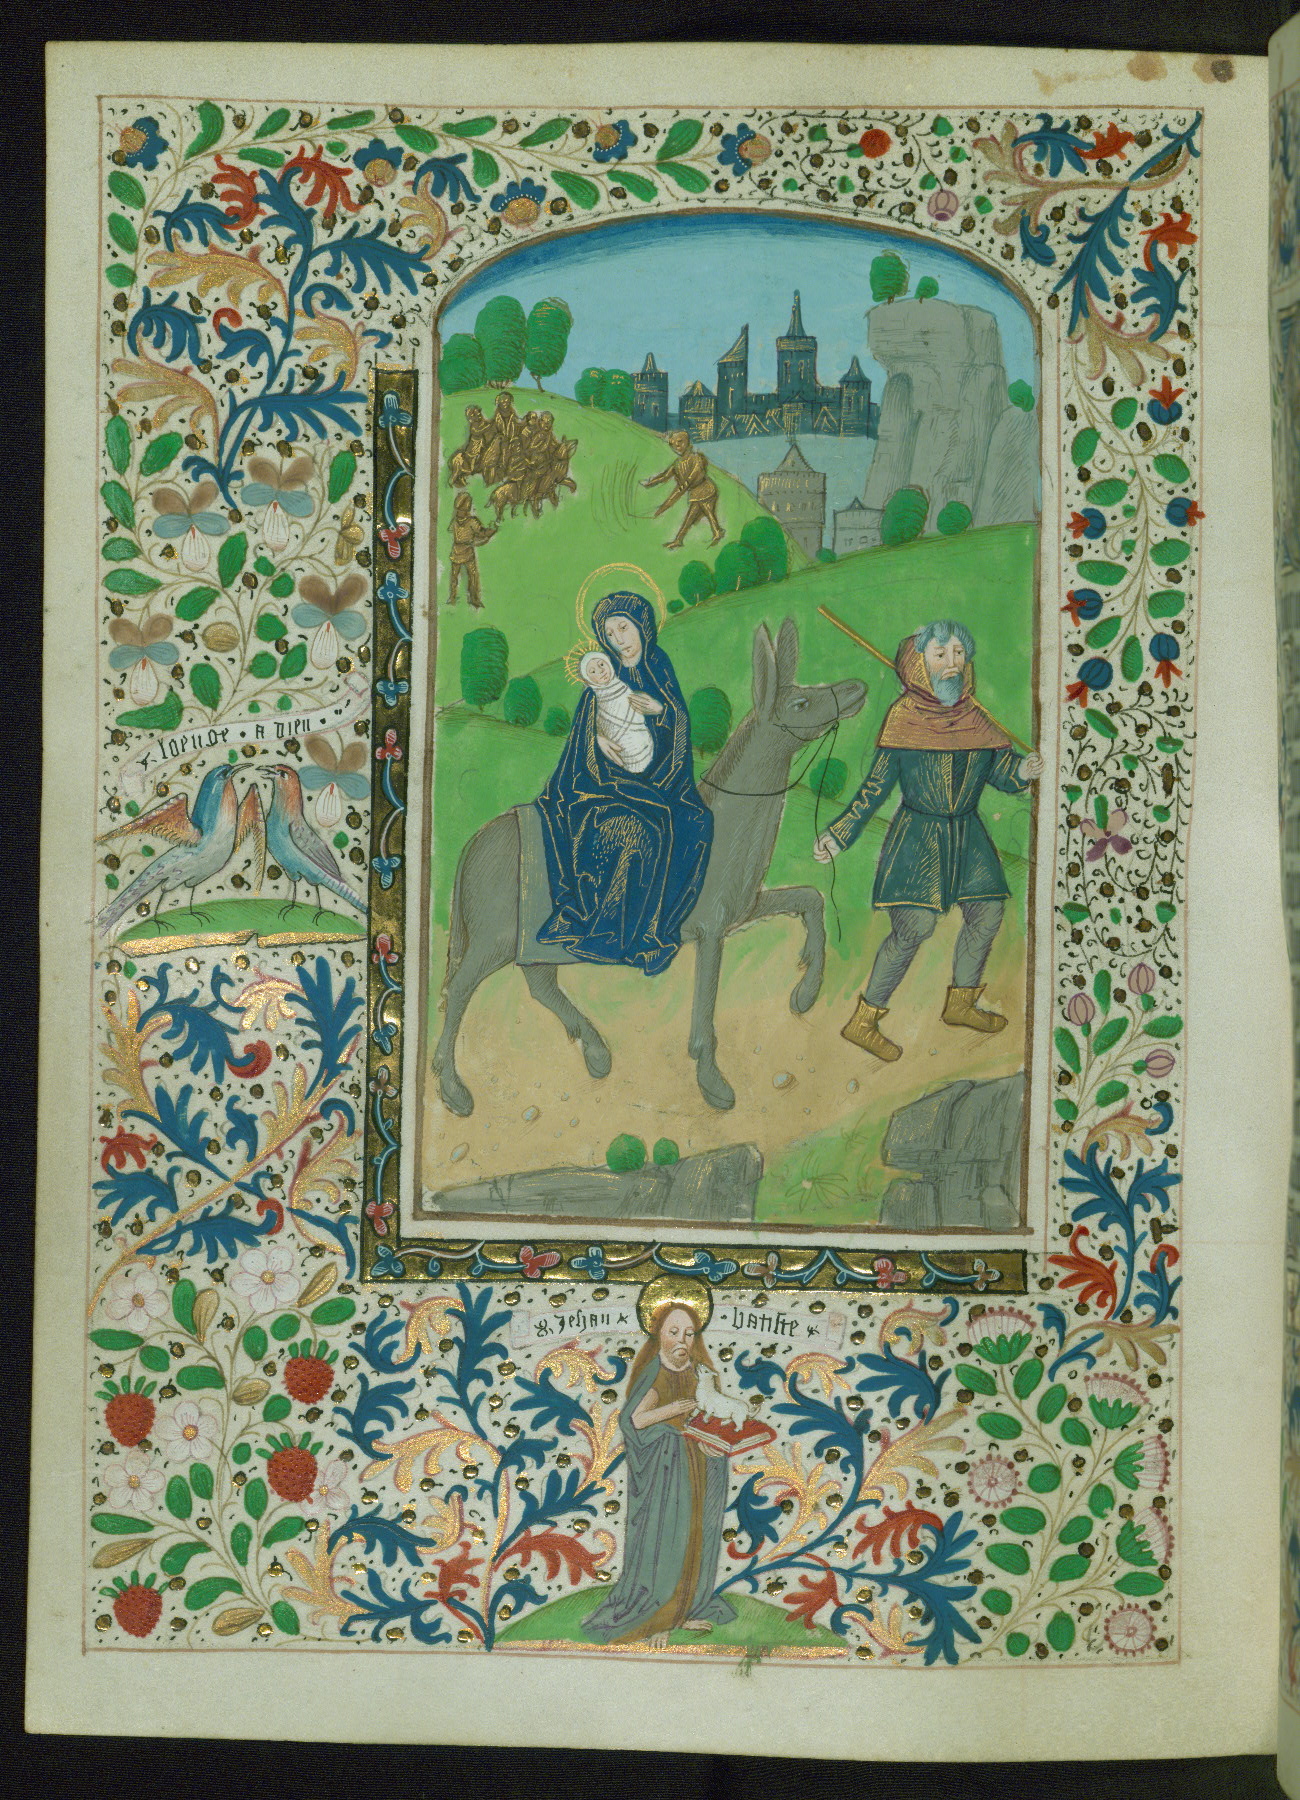 loenge · a dieu ·
S. Jehan batiste